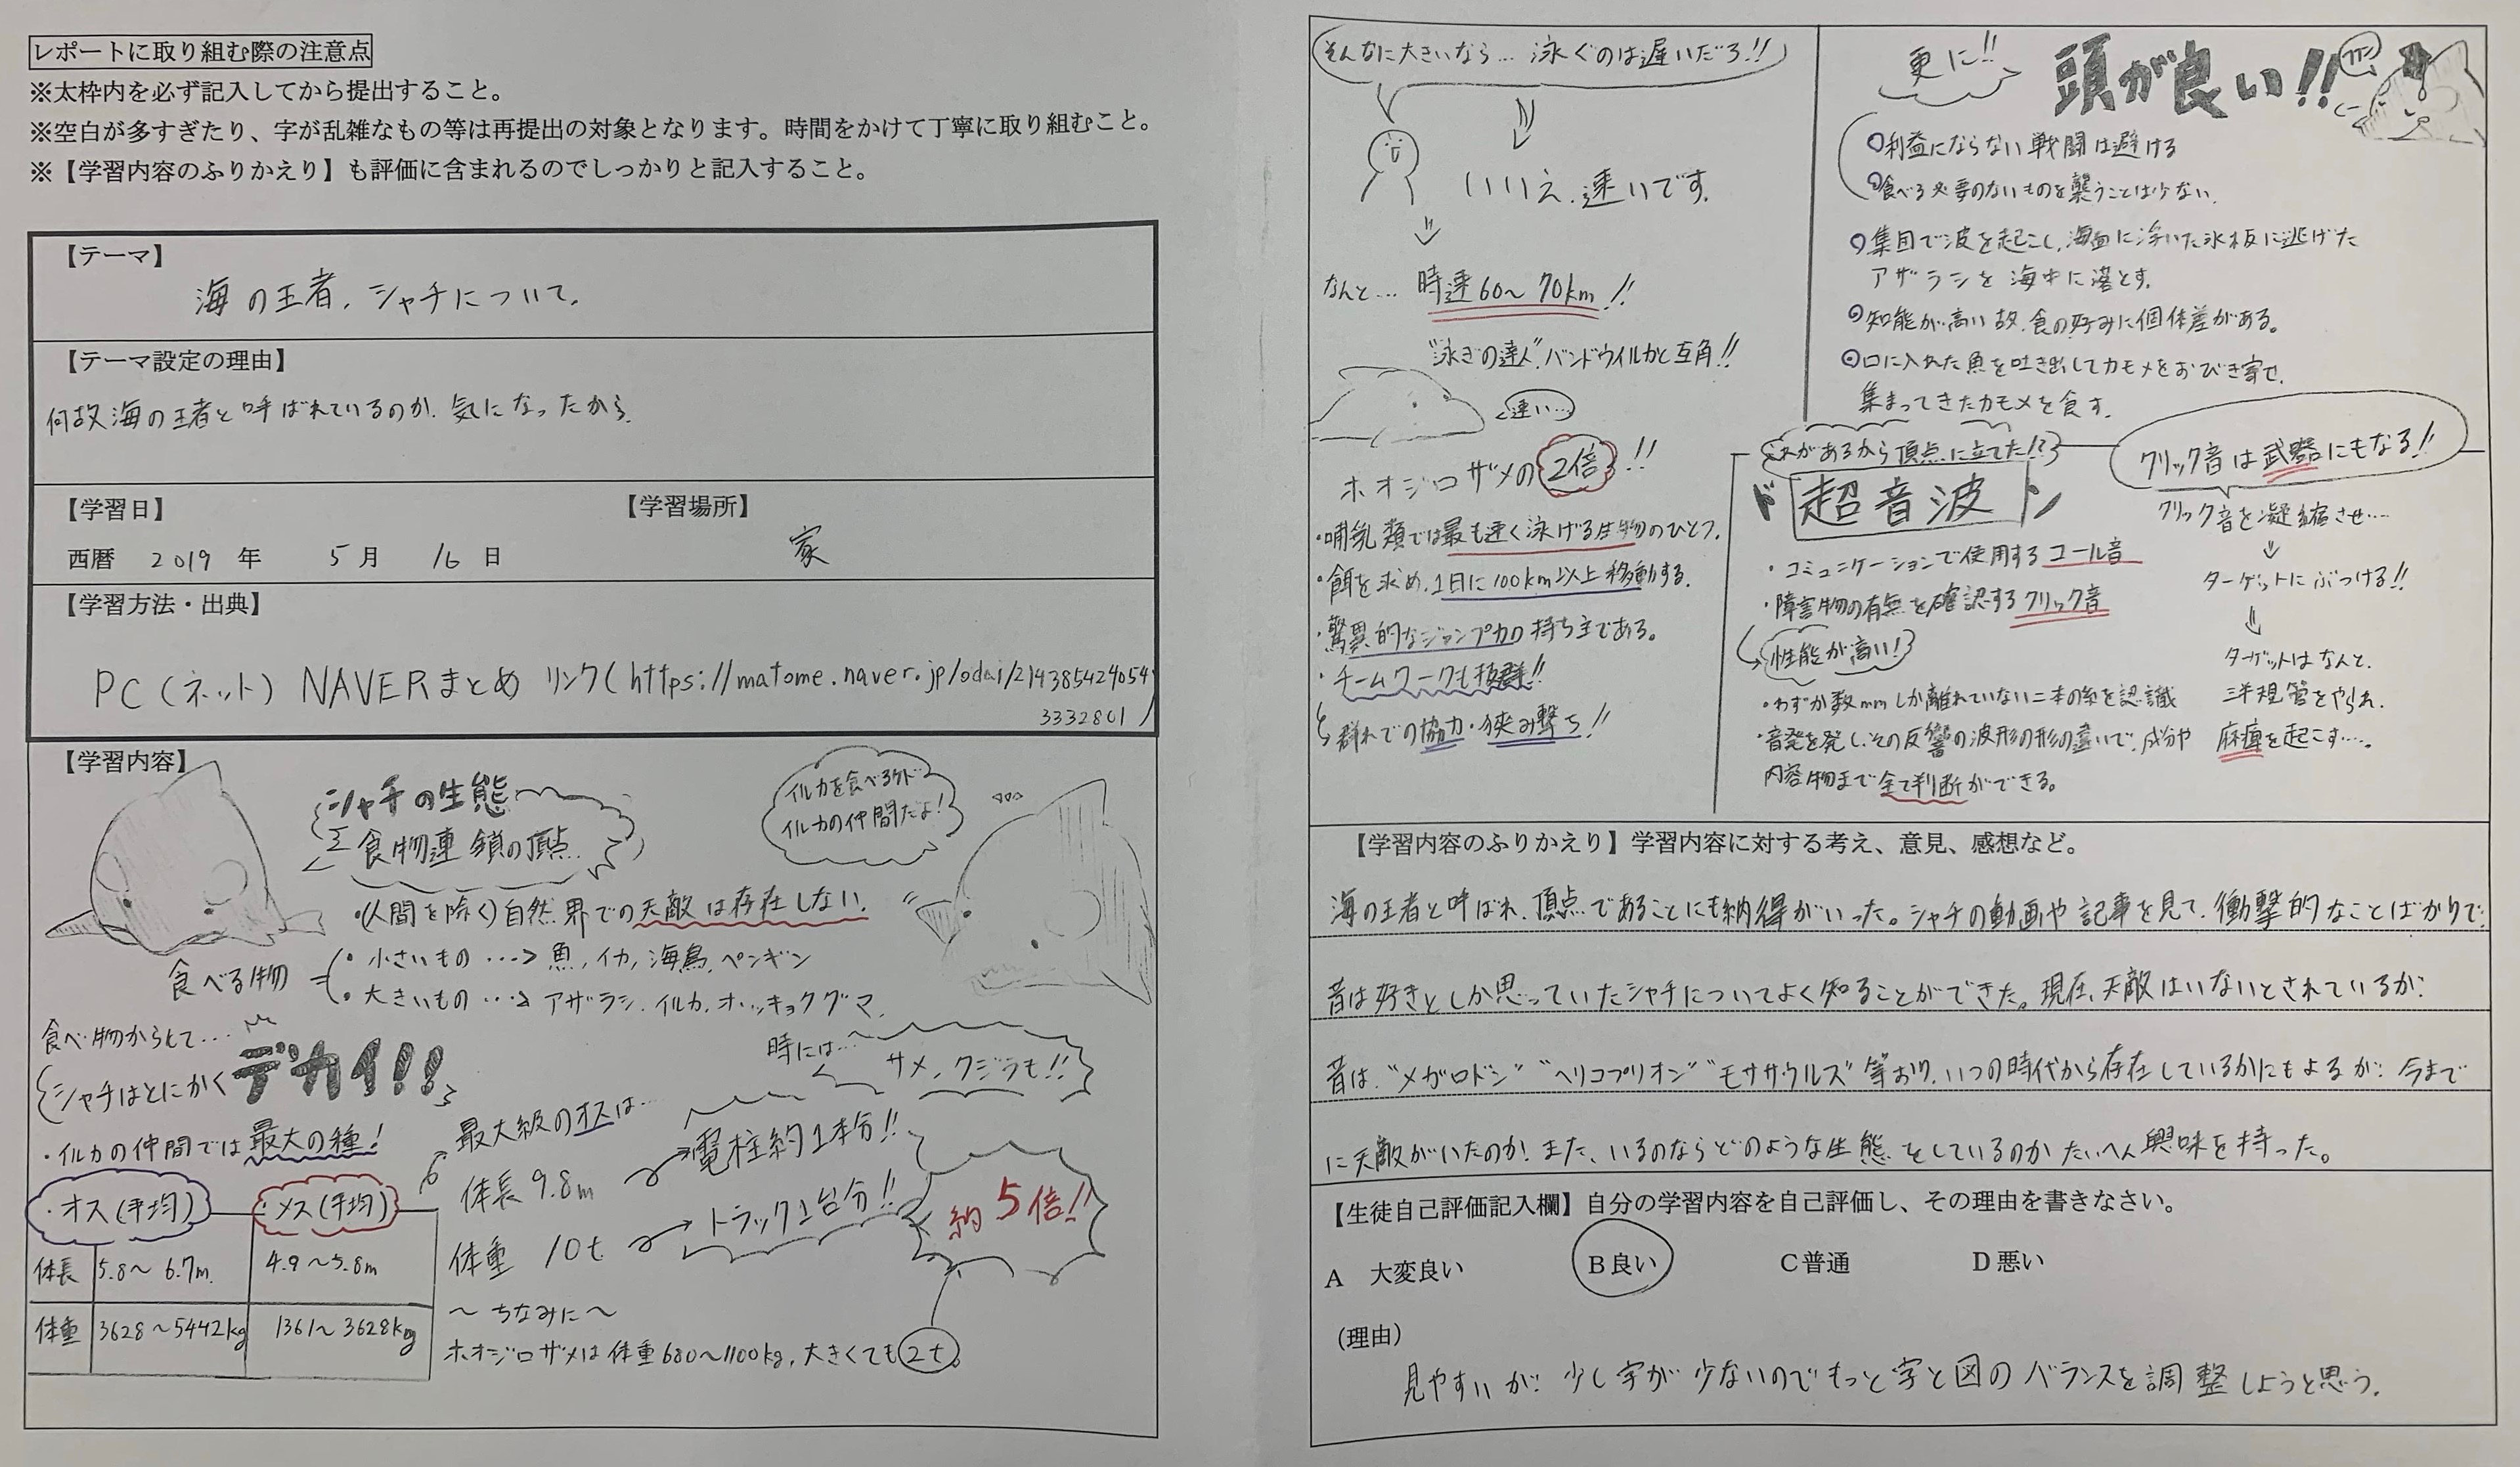 レポートに取り組む際の注意点
※太枠内を必ず記入してから提出すること。
※空白が多すぎたり、字が乱雑なもの等は再提出の対象となります。時間をかけて丁寧に取り組むこと。
※【学習内容のふりかえり】も評価に含まれるのでしっかりと記入すること。
【テーマ】
海の王者、シャチについて。
【テーマ設定の理由】
何故海の王者と呼ばれているのか、気になったから。
【学習日】
西暦 2019 年 5 月 16 日
【学習場所】
家
【学習方法・出典】
PC(ネット) NAVERまとめ リンク(https://matome.naver.jp/odai/2143854240541
3332801)
【学習内容】
シャチの生態
食物連鎖の頂点
イルカを食べるケド
イルカの仲間だよ!
・(人間を除く)自然界での天敵は存在しない。
食べる物
・小さいもの …→ 魚、イカ、海鳥、ペンギン
・大きいもの …→ アザラシ、イルカ、ホッキョクグマ、
時には…
サメ、クジラも!!
食べ物からして…
シャチはとにかくデカイ!!
・イルカの仲間では最大の種!
・オス(平均) ・メス(平均)
体長 5.8〜6.7m 4.9〜5.8m
体重 3628〜5442kg 1361〜3628kg
最大級のオスは…
体長 9.8m
電柱約1本分!!
体重 10t
トラック1台分!!
約5倍!!
〜ちなみに〜
ホオジロザメは体重680〜1100kg、大きくても2t。
そんなに大きいなら…泳ぐのは遅いだろ!!
いいえ、速いです。
なんと… 時速60〜70km!!
"泳ぎの達人"バンドウイルカと互角!!
速い…
ホオジロザメの2倍!!
・哺乳類では最も速く泳げる生物のひとつ。
・餌を求め、1日に100km以上移動する。
・驚異的なジャンプ力の持ち主である。
・チームワークも抜群!!
群れでの協力・挟み撃ち!!
更に!!
頭が良い!!
利益にならない戦闘は避ける
食べる必要のないものを襲うことは少ない。
集団で波を起こし、海面に浮いた氷板に逃げた
アザラシを海中に落とす。
知能が高い故、食の好みに個体差がある。
口に入れた魚を吐き出してカモメをおびき寄せ、
集まってきたカモメを食す。
これがあるから頂点に立てた!?
ド超音波ン
・コミュニケーションで使用するコール音
・障害物の有無を確認するクリック音
性能が高い!
・わずか数mmしか離れていない二本の糸を認識
・音発を発し、その反響の波形の形の違いで、成分や
内容物まで全て判断ができる。
クリック音は武器にもなる!!
クリック音を凝縮させ……
ターゲットにぶつける!!
ターゲットはなんと、
三半規管をやられ、
麻痺を起こす……。
【学習内容のふりかえり】学習内容に対する考え、意見、感想など。
海の王者と呼ばれ、頂点であることにも納得がいった。シャチの動画や記事を見て、衝撃的なことばかりで、
昔は好きとしか思っていたシャチについてよく知ることができた。現在、天敵はいないとされているが、
昔は、"メガロドン" "ヘリコプリオン" "モササウルス"等おり、いつの時代から存在しているかにもよるが、今まで
に天敵がいたのか、また、いるのならどのような生態をしているのかたいへん興味を持った。
【生徒自己評価記入欄】自分の学習内容を自己評価し、その理由を書きなさい。
A 大変良い B良い C普通 D悪い
(理由)
見やすいが、少し字が少ないのでもっと字と図のバランスを調整しようと思う。